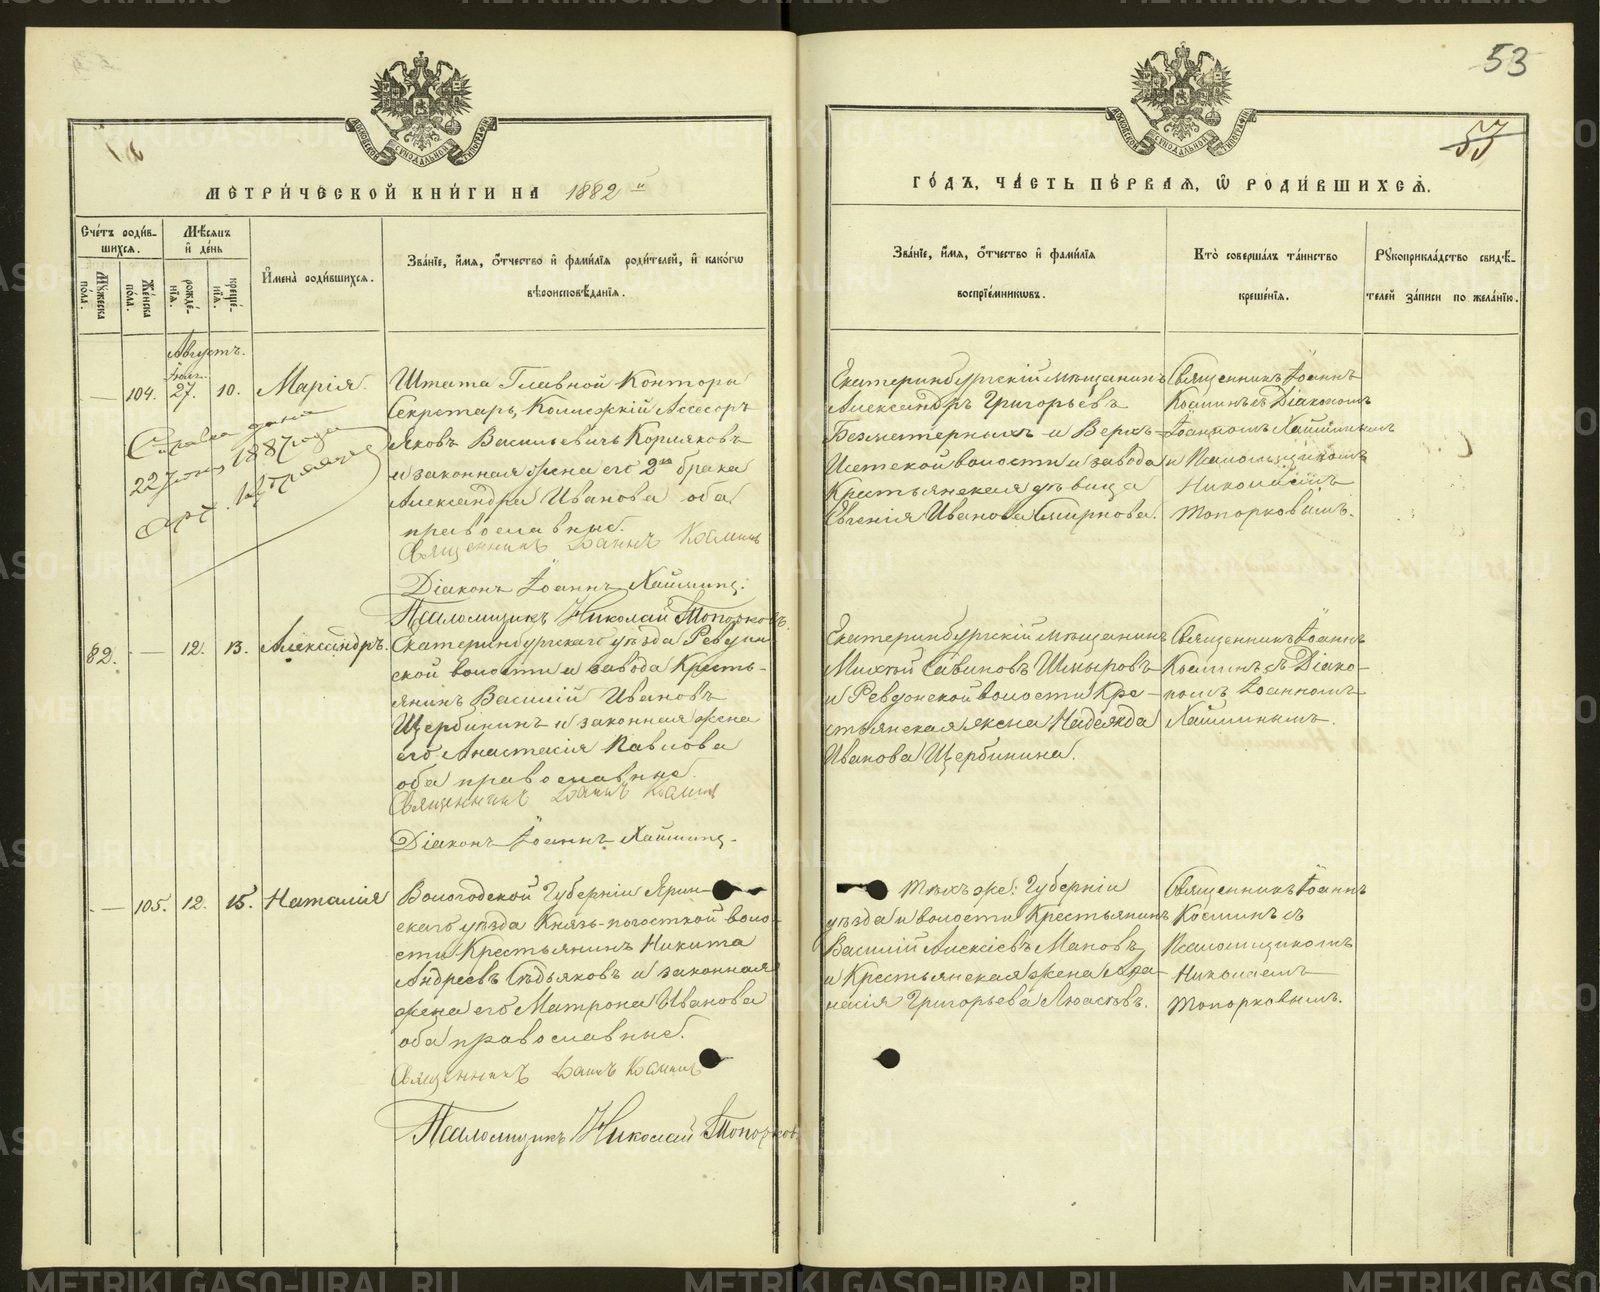 53
53
МЕТРИЧЕСКОЙ КНИГИ НА 1882 й
ГОДЪ, ЧАСТЬ ПЕРВАЯ, Ѡ РОДИВШИХСЯ.
Счетъ родив-
шихся.
Мѣсяцъ
и день
Мужеска
пола.
Женска
пола.
рожде-
нія.
креще-
нія.
Имена родившихся.
Званіе, имя, отчество и фамилія родителей, и какогѡ
вѣроисповѣданія.
Званіе, имя, отчество и фамилія
воспріемникѡвъ.
Кто совершалъ таинство
крещенія.
Рукоприкладство свидѣ-
телей записи по желанію.
Августъ.
Іюль.
— 104. 27. 10. Марія.
Штата Главной Конторы
Секретарь, Коллежскій Ассесоръ
Яковъ Васильевичъ Корляковъ
и законная жена его 2го брака
Александра Иванова оба
православные.
Священникъ Іоаннъ Косминъ
Діаконъ Іоаннъ Хайминъ.
Псаломщикъ Николай Топорковъ.
Справка дана
22 1887 года
Екатеринбургскій мѣщанинъ
Александръ Григорьевъ
Безматерныхъ и Верхъ-
Исетской волости и завода
Крестьянская дѣвица
Евгенія Иванова Смирнова.
Священникъ Іоаннъ
Косминъ съ Діакономъ
Іоанномъ Хайминымъ
и Псаломщикомъ
Николаемъ
Топорковымъ.
82. — 12. 13. Александръ.
Екатеринбургскаго уѣзда Ревдин-
ской волости и завода Кресть-
янинъ Василій Ивановъ
Щербининъ и законная жена
его Анастасія Павлова
оба православные.
Священникъ Іоаннъ Косминъ
Діаконъ Іоаннъ Хайминъ.
Екатеринбургскій мѣщанинъ
Савиновъ Шмыровъ
и Ревдонской волости Кре-
стьянская жена Надежда
Иванова Щербинина.
Священникъ Іоаннъ
Косминъ съ Діако-
номъ Іоанномъ
Хайминымъ.
— 105. 12. 15. Наталия
Вологодской Губерніи Ярин-
скаго уѣзда Князь-погосткой воло-
сти Крестьянинъ Никита
Андреевъ Сѣдьяковъ и законная
жена его Матрона Иванова
оба православные.
Священникъ Іоаннъ Косминъ
Псаломщикъ Николай Топорковъ
Тѣхъ же: Губерніи
уѣзда и волости Крестьянинъ
Василій Алексіевъ Мановъ
и Крестьянская жена
Григорьева
Священникъ Іоаннъ
Косминъ съ
Псаломщикомъ
Николаемъ
Топорковымъ.
METRIKI.GASO-URAL.RU